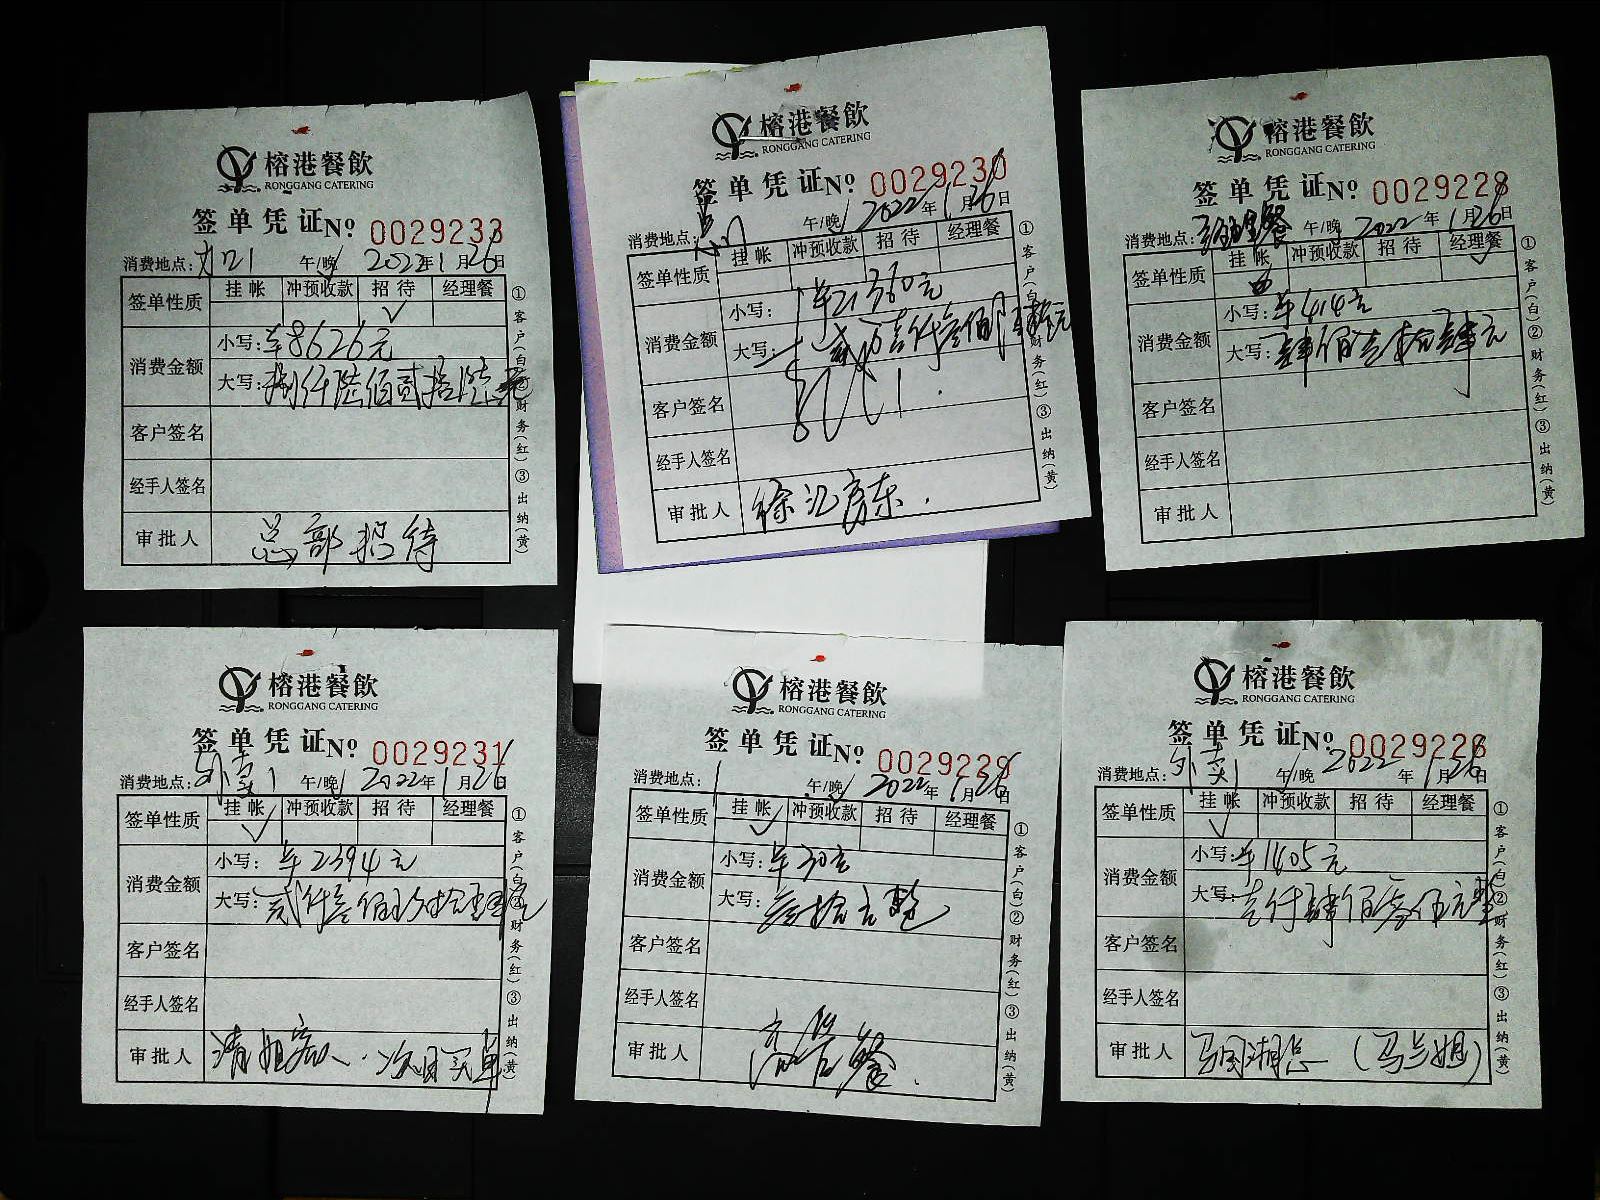 榕港餐飲
RONGGANG CATERING
签单凭证 No 0029233
消费地点: 午/晚 2022年1月26日
签单性质 挂帐 冲预收款 招待 经理餐
消费金额 小写: ¥8626元
大写: 捌仟陆佰贰拾陆元
客户签名
经手人签名
审批人 总部招待
①客户(白)②财务(红)③出纳(黄)
榕港餐飲
RONGGANG CATERING
签单凭证 No 0029230
消费地点: 午/晚 2022年1月26日
签单性质 挂帐 冲预收款 招待 经理餐
消费金额 小写: ¥21360元
大写: 贰万壹仟叁佰陆拾元
客户签名
经手人签名
审批人 徐汇房东.
①客户(白)②财务(红)③出纳(黄)
榕港餐飲
RONGGANG CATERING
签单凭证 No 0029228
消费地点: 经理餐 午/晚 2022年1月26日
签单性质 挂帐 冲预收款 招待 经理餐
消费金额 小写: ¥414元
大写: 肆佰壹拾肆元
客户签名
经手人签名
审批人
①客户(白)②财务(红)③出纳(黄)
榕港餐飲
RONGGANG CATERING
签单凭证 No 0029231
消费地点: 外卖1 午/晚 2022年1月26日
签单性质 挂帐 冲预收款 招待 经理餐
消费金额 小写: ¥2394元
大写: 贰仟叁佰玖拾肆元
客户签名
经手人签名
审批人 清姐客人.次日买单
①客户(白)②财务(红)③出纳(黄)
榕港餐飲
RONGGANG CATERING
签单凭证 No 0029229
消费地点: 午/晚 2022年1月26日
签单性质 挂帐 冲预收款 招待 经理餐
消费金额 小写: ¥30元
大写: 叁拾元整
客户签名
经手人签名
审批人 高管餐.
①客户(白)②财务(红)③出纳(黄)
榕港餐飲
RONGGANG CATERING
签单凭证 No 0029226
消费地点: 外卖1 午/晚 2022年1月26日
签单性质 挂帐 冲预收款 招待 经理餐
消费金额 小写: ¥1405元
大写: 壹仟肆佰零伍元整
客户签名
经手人签名
审批人 马国湖总 (马兰姐)
①客户(白)②财务(红)③出纳(黄)